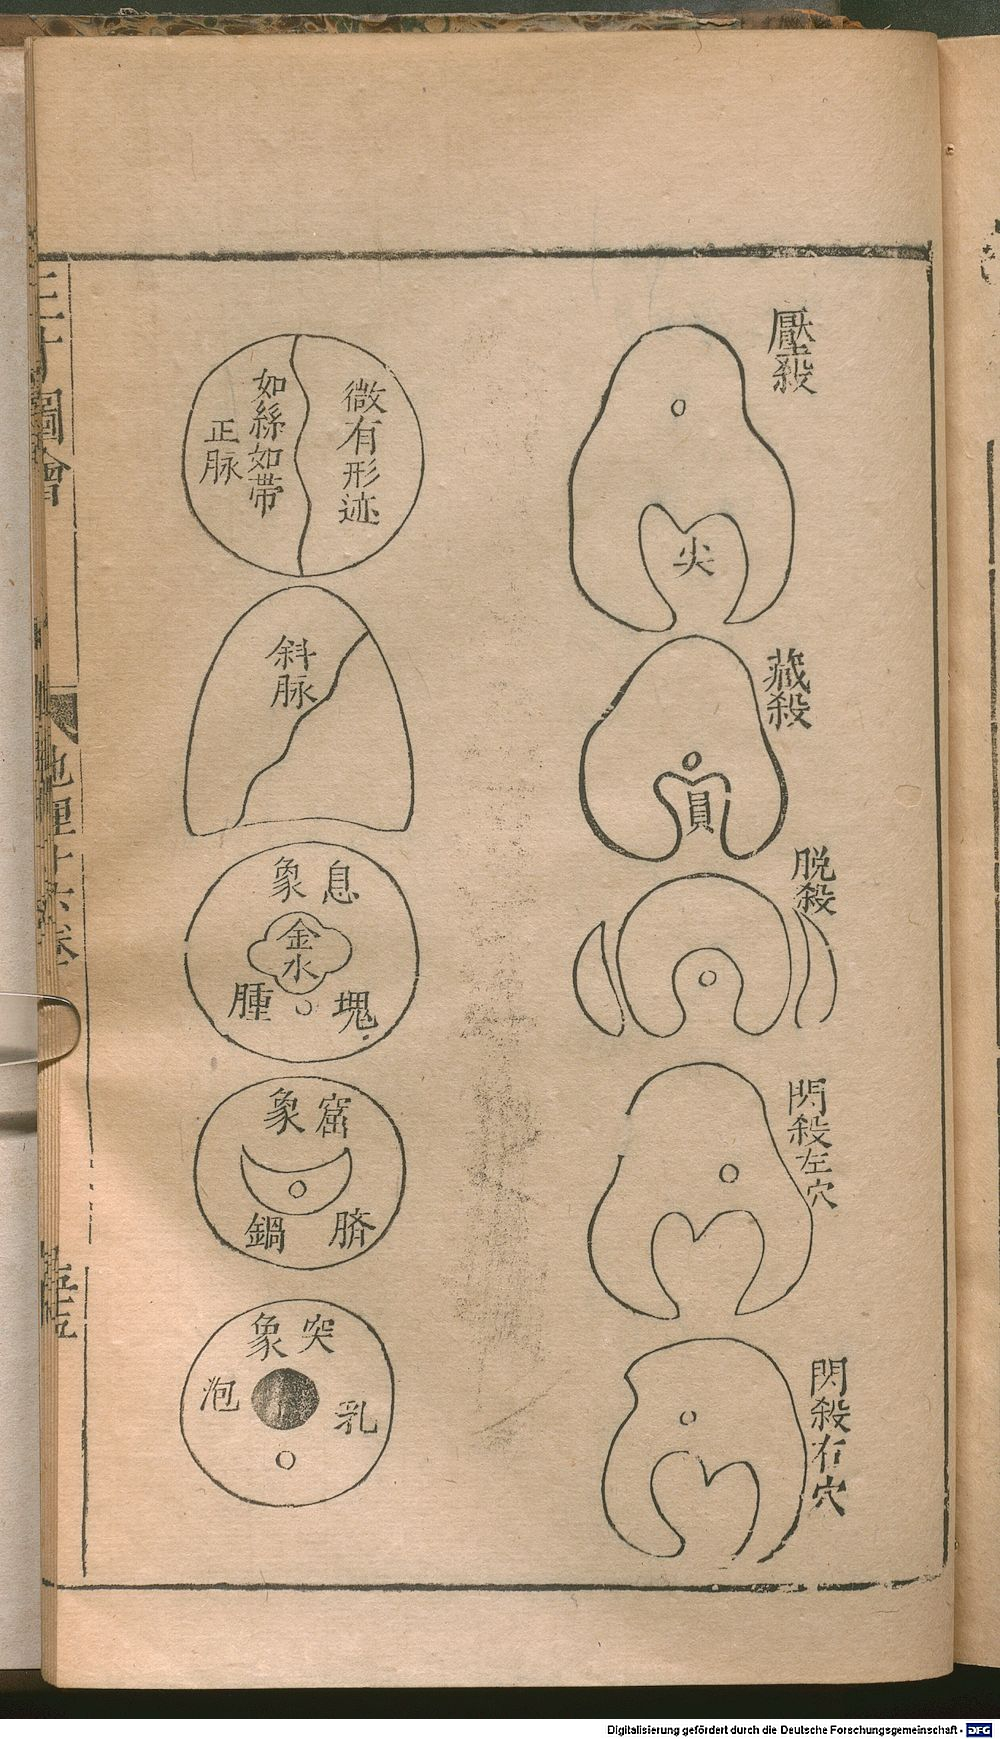 壓殺
尖
藏殺
員
脫殺
閃殺左穴
閃殺右穴
微有形迹
如絲如帶
正脉
斜脉
息象
金水
塊腫
窟象
臍鍋
突象
乳泡
三才圖會
地理十六卷
Digitalisierung gefördert durch die Deutsche Forschungsgemeinschaft - DFG